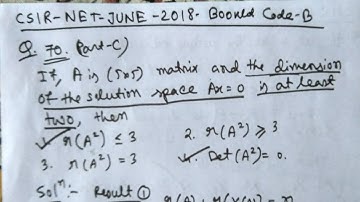 CSIR-NET-JUNE-2018- Booklet Code-B
Q. 70. Part-C)
If, A is (5x5) matrix and the dimension
of the solution space Ax=0 is at least
two, then
✓ r(A²) ≤ 3 2. r(A²) ≥ 3
3. r(A²) = 3 ✓ 4. Det(A²) = 0.
Solⁿ:- Result ①